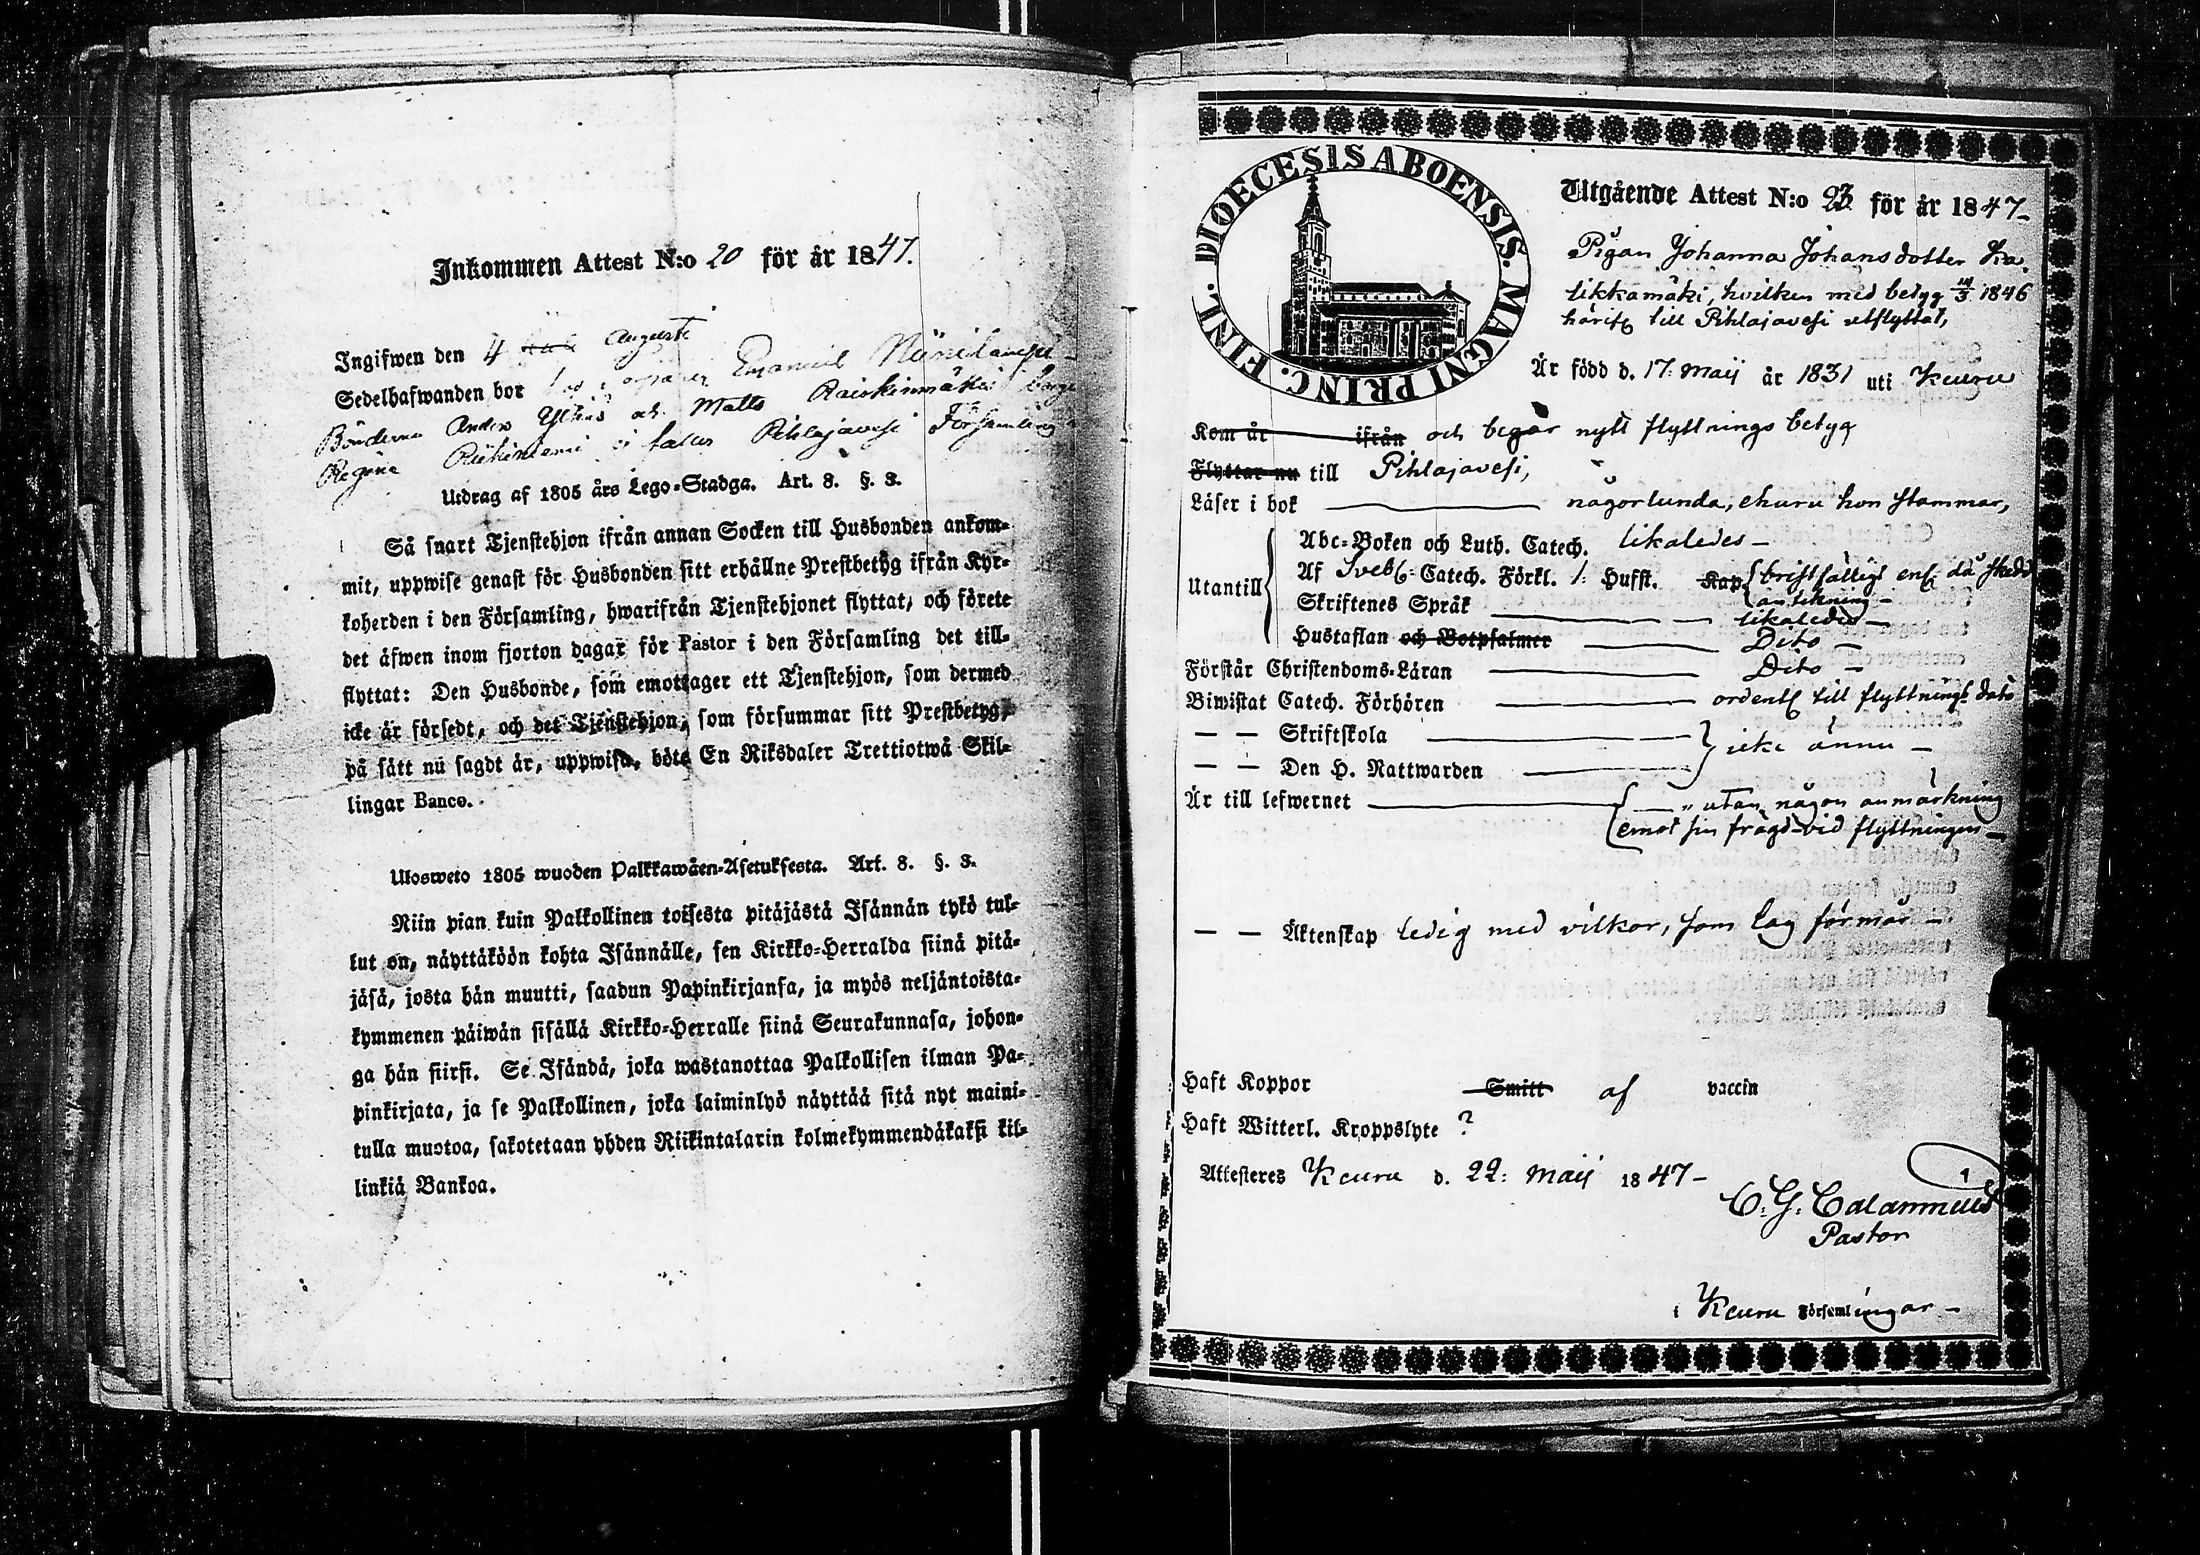 Inkommen Attest N:o 20 för år 1847.
Ingifwen den 4 Augusti
Sedelhafwanden bor Emanuel
Bönderne Anders och Matts Raiskinmäki
Regina i Pihlajavesi Församling
Utdrag af 1805 års Lego-Stadga. Art. 8. §. 3.
Så snart Tjenstehjon ifrån annan Socken till Husbonden ankom-
mit, uppwise genast för Husbonden sitt erhållne Prestbetyg ifrån Kyr-
koherden i den Församling, hwarifrån Tjenstehjonet flyttat, och förete
det äfwen inom fjorton dagar för Pastor i den Församling det till-
flyttat: Den Husbonde, som emottager ett Tjenstehjon, som dermed
icke är försedt, och det Tjenstehjon, som försummar sitt Prestbetyg,
på sätt nu sagdt är, uppwisa, böte En Riksdaler Trettiotwå Skil-
lingar Banco.
Ulosweto 1805 wuoden Palkkawäen-Asetuksesta. Art. 8. §. 3.
Niin pian kuin Palkollinen toisesta pitäjästä Isännän tykö tul-
lut on, näyttäköön kohta Isännälle, sen Kirkko-Herralda siinä pitä-
jäsä, josta hän muutti, saadun Papinkirjansa, ja myös neljäntoista-
kymmenen päiwän sisällä Kirkko-Herralle siinä Seurakunnasa, johon-
ga hän siirsi. Se Isändä, joka wastanottaa Palkollisen ilman Pa-
pinkirjata, ja se Palkollinen, joka laiminlyö näyttää sitä nyt maini-
tulla muotoa, sakotetaan yhden Riikintalarin kolmekymmendäkaksi kil-
linkiä Bankoa.
DIOECESIS ABOENSIS. MAGNI PRINC. FINL.
Utgående Attest N:o 23 för år 1847-
Pigan Johanna Johansdotter Ka-
likkamäki, hvilken med betyg 14/3 1846
härifr till Pihlajavesi utflyttat,
Är född d. 17: Maij år 1831 uti Keuru
Kom år ifrån och begär nytt flyttnings betyg
Flyttar nu till Pihlajavesi,
Läser i bok någorlunda, ehuru hon stammar,
Utantill
Abc-Boken och Luth. Catech. likaledes -
Af Sveb: Catech. Förkl. 1: Hufst. Kap bristfälligt enl: då skedd
anteckning -
Skriftenes Språk likaledes -
Hustaflan och Botpsalmer Dito -
Förstår Christendoms-Läran Dito -
Biwistat Catech. Förhören ordentl till flyttnings dato
— — Skriftskola
icke ännu -
— — Den H. Nattwarden
Är till lefwernet utan någon anmärkning
emot sin frägd vid flyttningen -
— — Äktenskap ledig med vilkor, som Lag förmår -
Haft Koppor Smitt af vaccin
Haft Witterl. Kroppslyte ?
Attesteres Keuru d. 22: Maij 1847-
C. G. Calamnius
Pastor
i Keuru Församlingar -